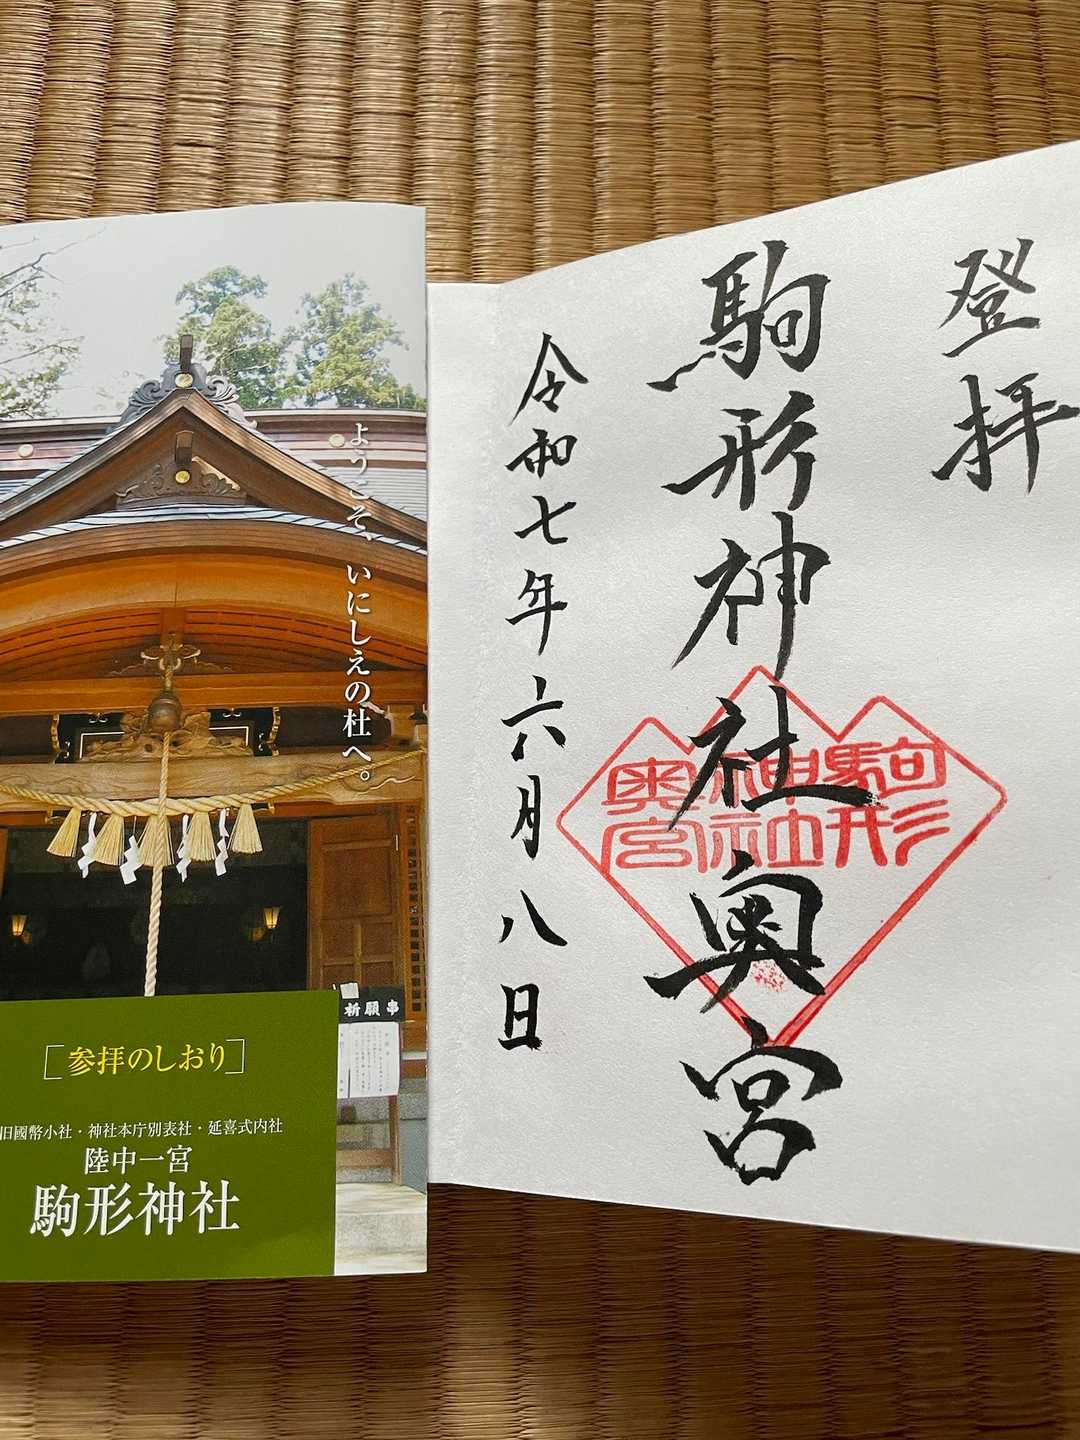 登拝
駒形神社奥宮
令和七年六月八日
駒形
神社
奥宮
ようこそ、いにしえの杜へ。
祈願串
[参拝のしおり]
旧國幣小社・神社本庁別表社・延喜式内社
陸中一宮
駒形神社